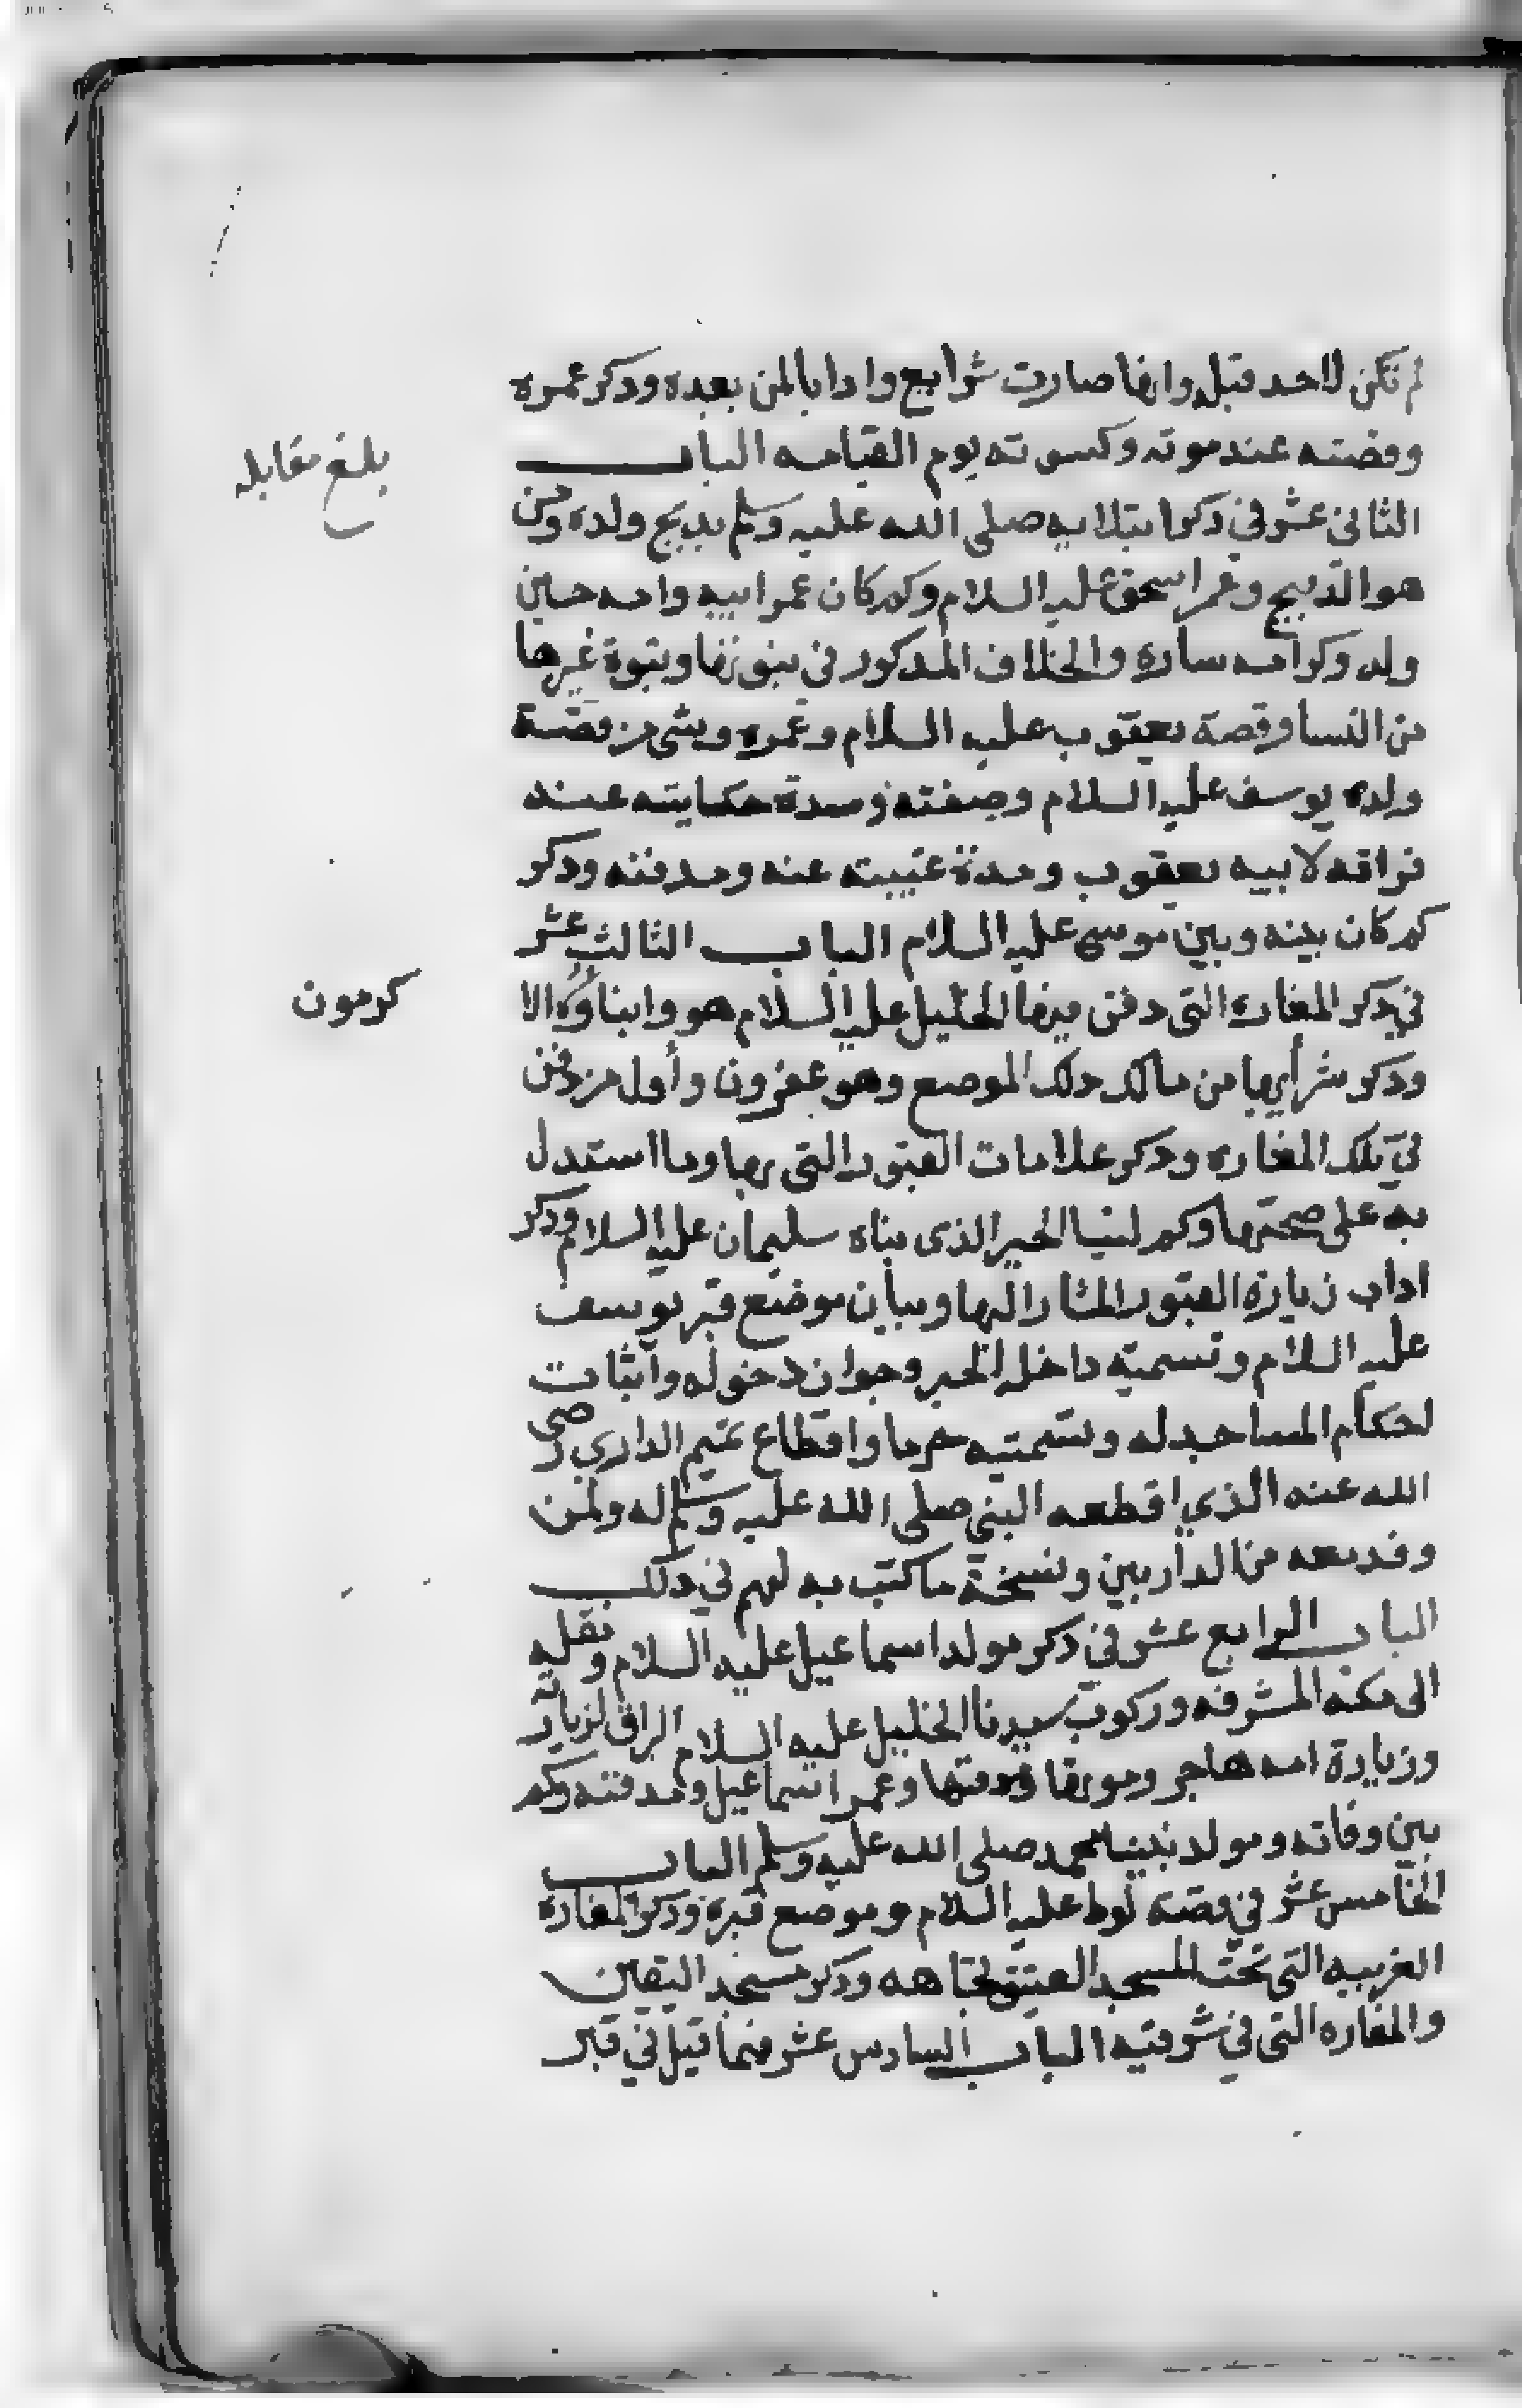 لم تكن لاحد قبله وانها صارت شرايع وادابا لمن بعده وذكر عمره
وقصته عند موته وكسوته يوم القيامه الباب
بلغ مقابله
الثاني عشر في ذكر ابتلايه صلى الله عليه وسلم بذبح ولده ومن
هو الذبيح وعمر اسحق عليه السلام وكم كان عمر ابيه وامه حين
ولد وذكر امه ساره والخلاف المذكور في نبوتها ونبوة غيرها
من النسا وقصة يعقوب عليه السلام وعمره وشي من قصة
ولده يوسف عليه السلام وصفته ومدة حكايته عند
فراقه لابيه يعقوب ومدة غيبته عنه ومدفنه وذكر
كم كان بينه وبين موسى عليه السلام الباب الثالث عشر
في ذكر المغاره التي دفن فيها الخليل عليه السلام هو وابناؤه الا
كرمون
وذكر شرايها من مالك ذلك الموضع وهو عفرون وأول من دفن
في تلك المغاره وذكر علامات القبور التي بها وما استدل
به على صحتها وكم لبنا الحير الذي بناه سليمان عليه السلام وذكر
اداب زيارة القبور المشار اليها وبيان موضع قبر يوسف
عليه السلام وتسمية داخله الحير وجواز دخوله واثبات
احكام المساجد له وتسميته حرما واقطاع تميم الداري رضي
الله عنه الذي اقطعه النبي صلى الله عليه وسلم له ولمن
وفد معه من الداريين ونسخة ما كتب به لهم في ذلك
الباب الرابع عشر في ذكر مولد اسماعيل عليه السلام ونقله
الى مكه المشرفه وركوب سيدنا الخليل عليه السلام البراق لزيارته
وزيارة امه هاجر وموتها ومدفنها وعمر اسماعيل ومدفنه وكم
بين وفاته ومولد نبينا محمد صلى الله عليه وسلم الباب
الخامس عشر في قصة لوط عليه السلام وموضع قبره وذكر المغاره
الغربيه التي تحت المسجد العتيق تجاهه وذكر مسجد اليقين
والمغاره التي في شرقيه الباب السادس عشر فيما قيل في قبر